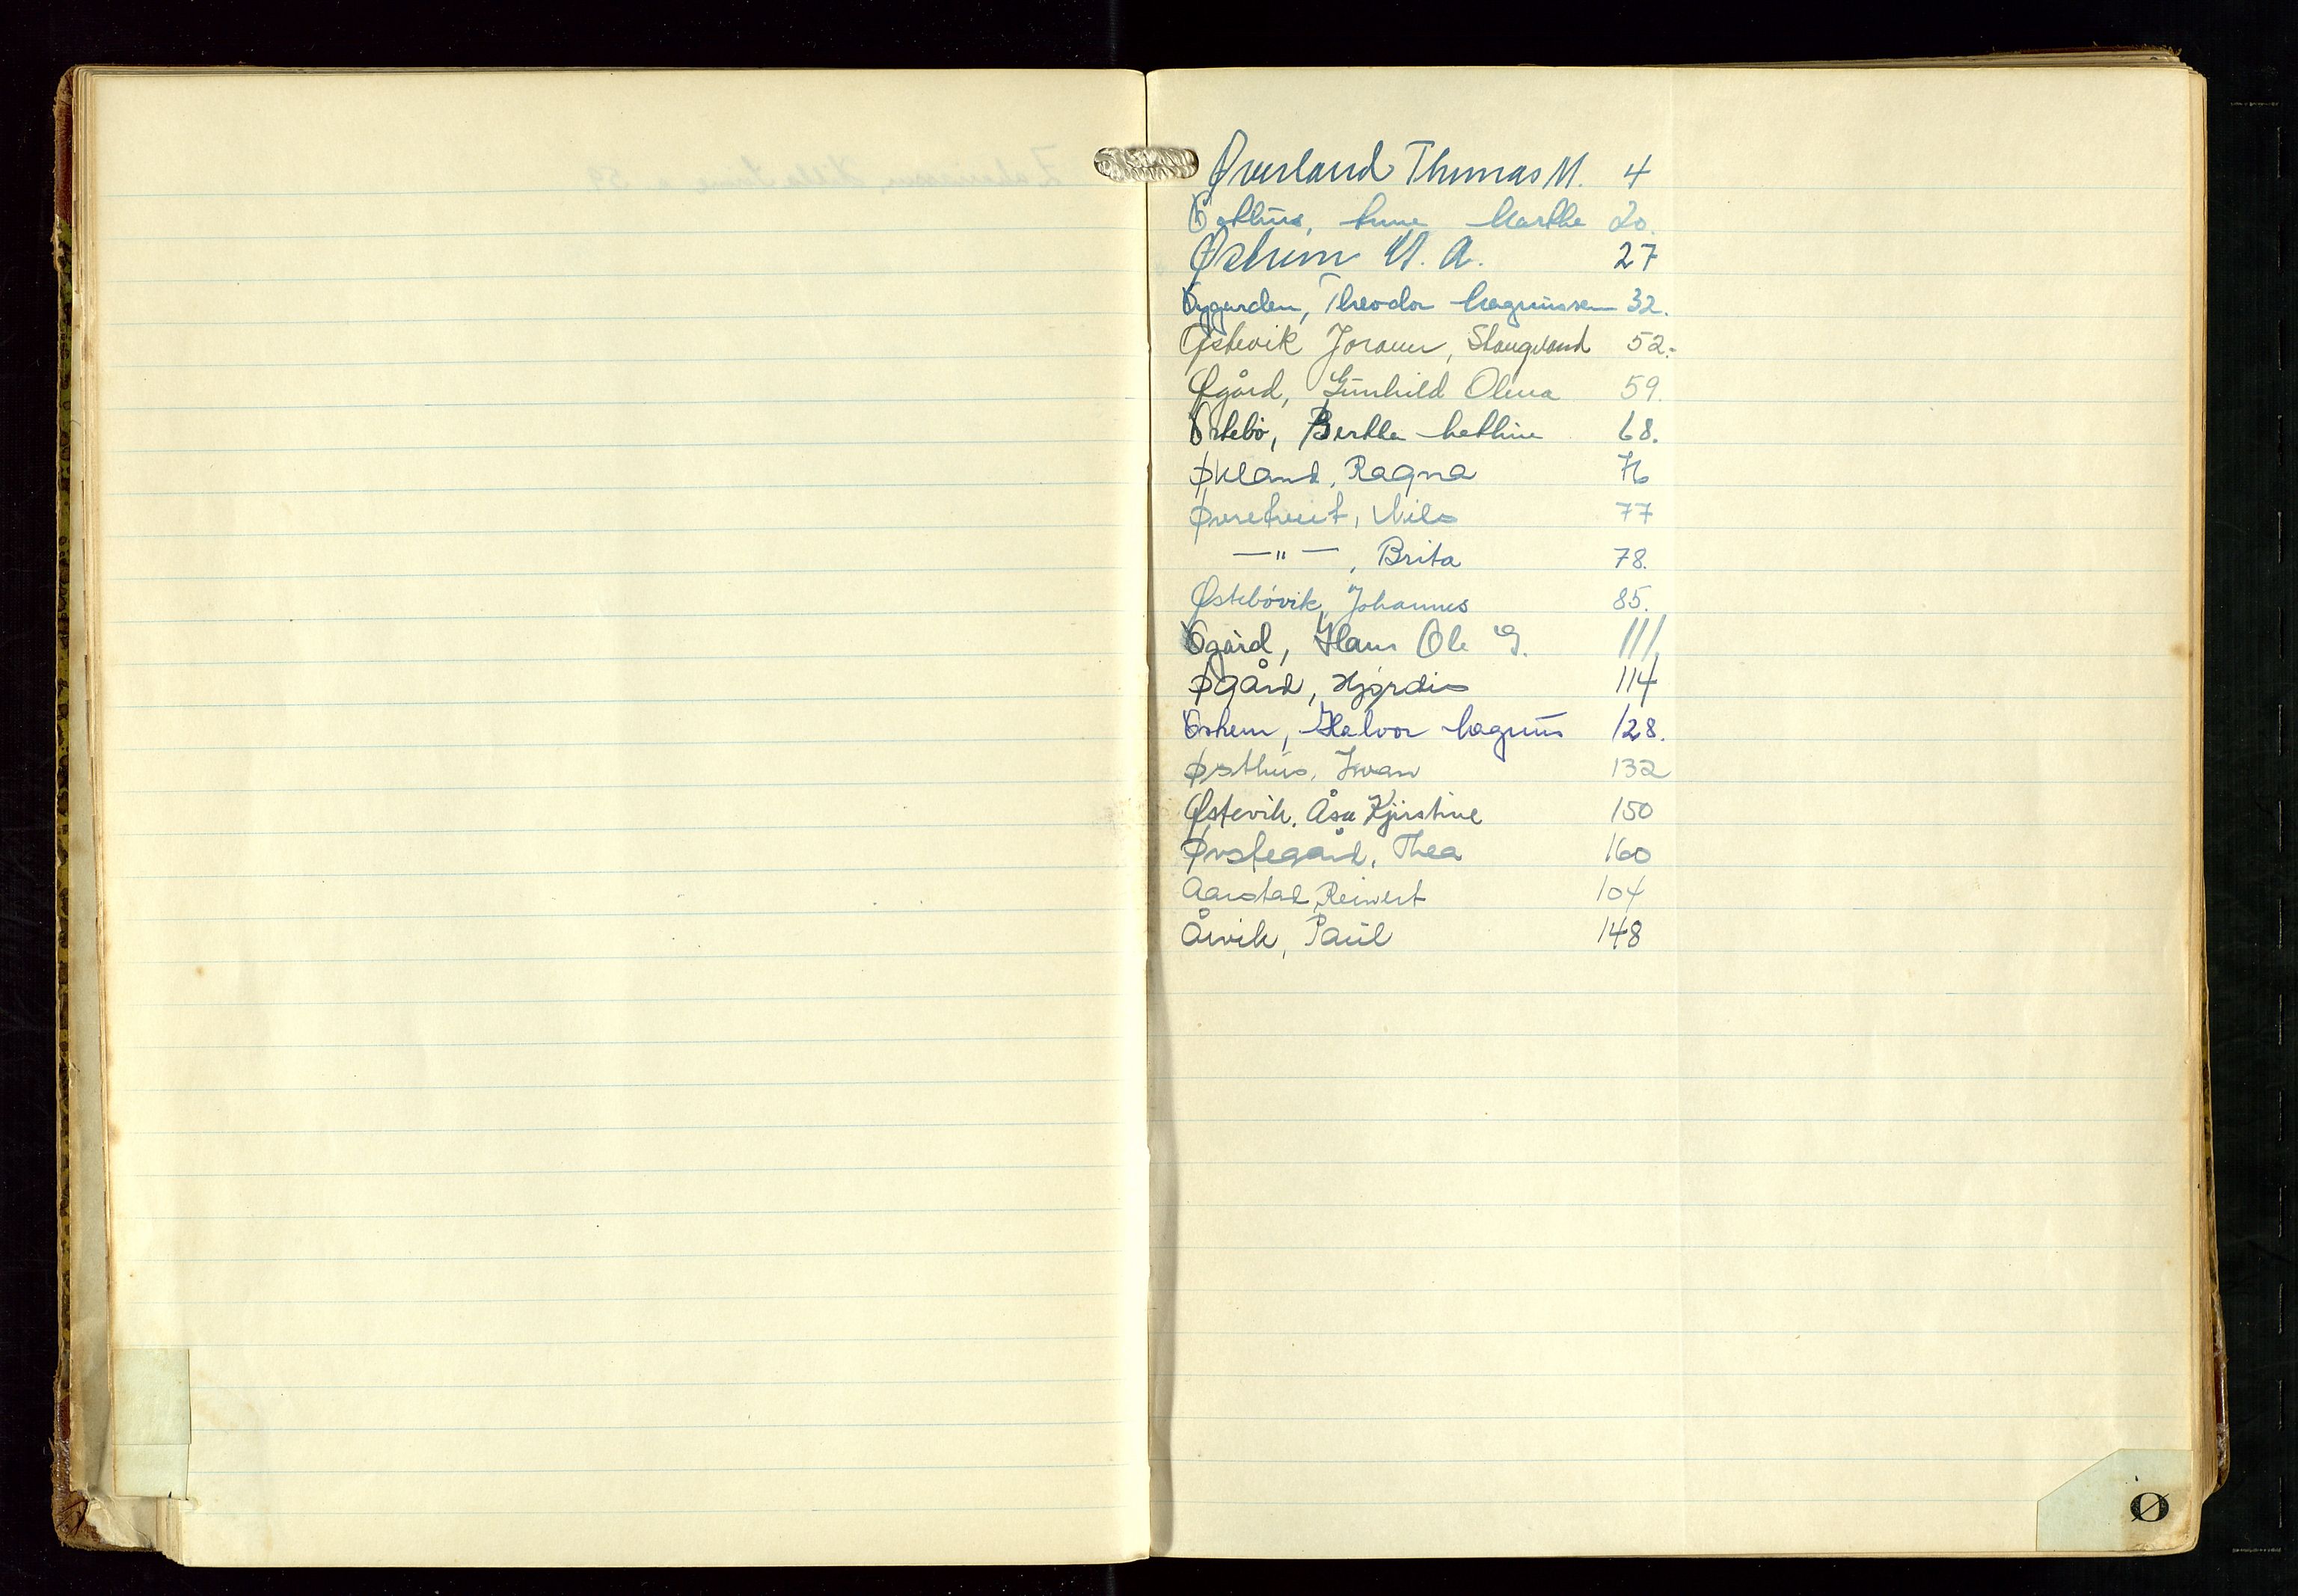 Øverland Thomas M. 4
Østhus, Anne Marthe 20.
Østrem M. A. 27
Øygarden, Theodor Magnussen 32.
Østevik Jorann, Stangeland 52.
Øgård, Gunhild Olena 59.
Østebø, Berthe Mathine 68.
Økland, Ragna 76
Øvretveit, Nils 77
—"— , Brita 78.
Østebøvik, Johannes 85.
Øgård, Hans Ole G. 111.
Øgård, Hjørdis 114
Østrem, Halvor Magnus 128.
Østhus, Ivan 132
Østevik, Åsa Kjirstine 150
Øvstegård, Thea 160
Aarstad, Reinert 104
Årvik, Paul 148
Ø